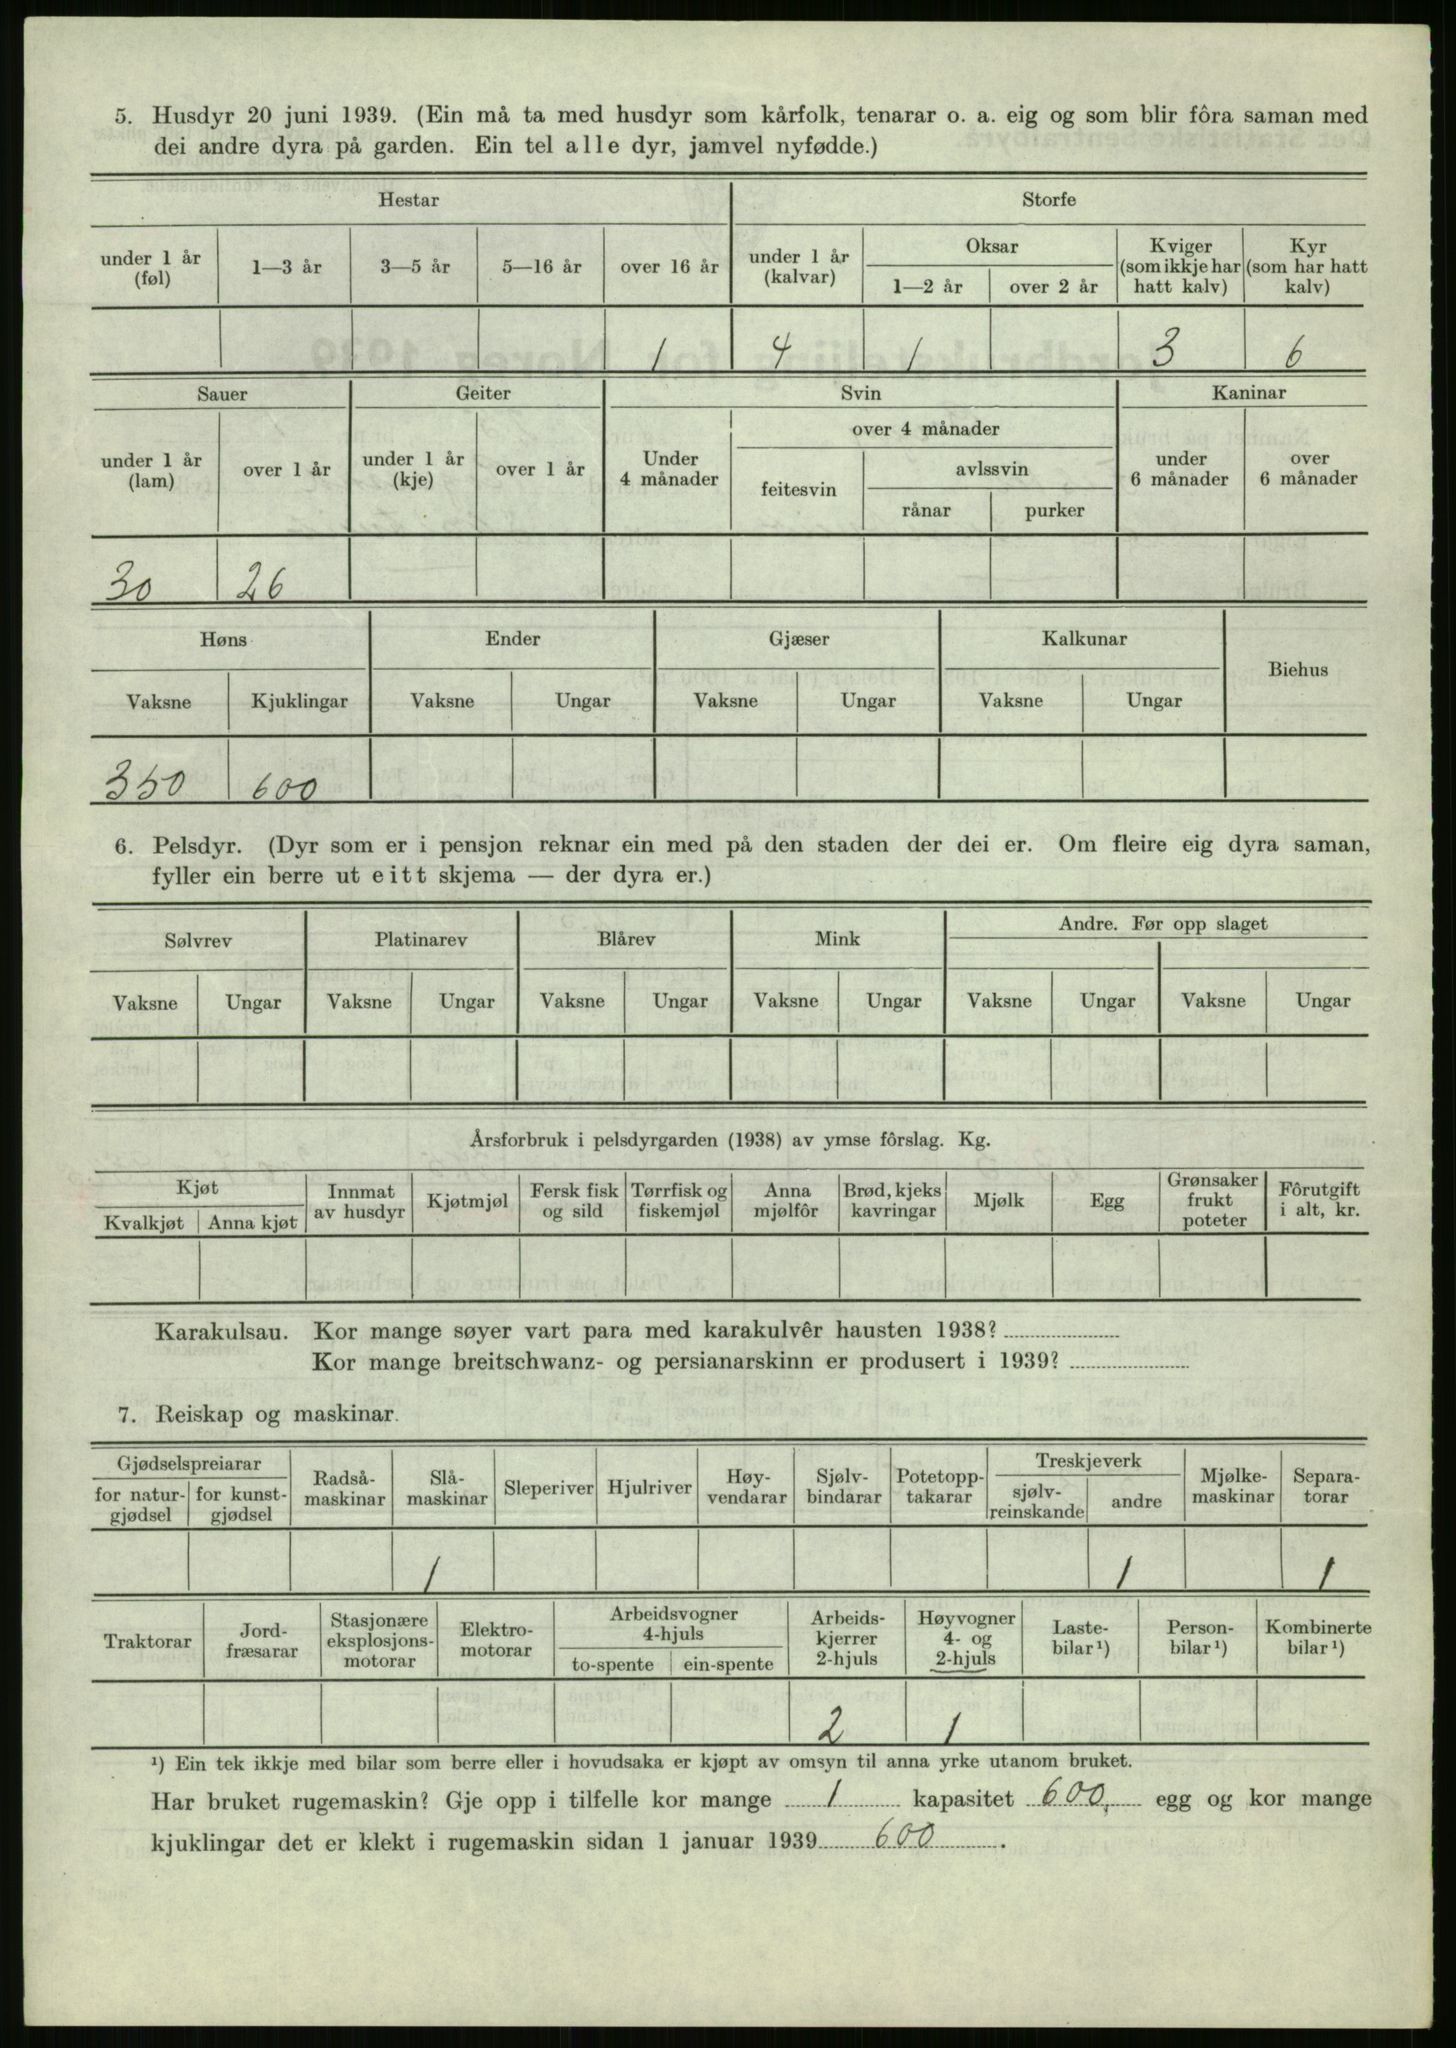 5. Husdyr 20 juni 1939. (Ein må ta med husdyr som kårfolk, tenarar o. a. eig og som blir fôra saman med
dei andre dyra på garden. Ein tel alle dyr, jamvel nyfødde.)
Hestar Storfe
under 1 år (føl) 1—3 år 3—5 år 5—16 år over 16 år under 1 år (kalvar) Oksar 1—2 år over 2 år Kviger (som ikkje har hatt kalv) Kyr (som har hatt kalv)
1 4 1 3 6
Sauer Geiter Svin Kaninar
under 1 år (lam) over 1 år under 1 år (kje) over 1 år Under 4 månader over 4 månader feitesvin avlssvin rånar purker under 6 månader over 6 månader
30 26
Høns Ender Gjæser Kalkunar Biehus
Vaksne Kjuklingar Vaksne Ungar Vaksne Ungar Vaksne Ungar
350 600
6. Pelsdyr. (Dyr som er i pensjon reknar ein med på den staden der dei er. Om fleire eig dyra saman,
fyller ein berre ut eitt skjema — der dyra er.)
Sølvrev Platinarev Blårev Mink Andre. Før opp slaget
Vaksne Ungar Vaksne Ungar Vaksne Ungar Vaksne Ungar Vaksne Ungar Vaksne Ungar
Årsforbruk i pelsdyrgarden (1938) av ymse fôrslag. Kg.
Kjøt Kvalkjøt Anna kjøt Innmat av husdyr Kjøtmjøl Fersk fisk og sild Tørrfisk og fiskemjøl Anna mjølfôr Brød, kjeks kavringar Mjølk Egg Grønsaker frukt poteter Fôrutgift i alt, kr.
Karakulsau. Kor mange søyer vart para med karakulvêr hausten 1938?
Kor mange breitschwanz- og persianarskinn er produsert i 1939?
7. Reiskap og maskinar.
Gjødselspreiarar for natur-gjødsel for kunst-gjødsel Radså-maskinar Slå-maskinar Sleperiver Hjulriver Høy-vendarar Sjølv-bindarar Potetopp-takarar Treskjeverk sjølv-reinskande andre Mjølke-maskinar Separa-torar
1 1 1
Traktorar Jord-fræsarar Stasjonære eksplosjons-motorar Elektro-motorar Arbeidsvogner 4-hjuls to-spente ein-spente Arbeids-kjerrer 2-hjuls Høyvogner 4- og 2-hjuls Laste-bilar¹) Person-bilar¹) Kombinerte bilar¹)
2 1
¹) Ein tek ikkje med bilar som berre eller i hovudsaka er kjøpt av omsyn til anna yrke utanom bruket.
Har bruket rugemaskin? Gje opp i tilfelle kor mange 1 kapasitet 600, egg og kor mange
kjuklingar det er klekt i rugemaskin sidan 1 januar 1939 600.